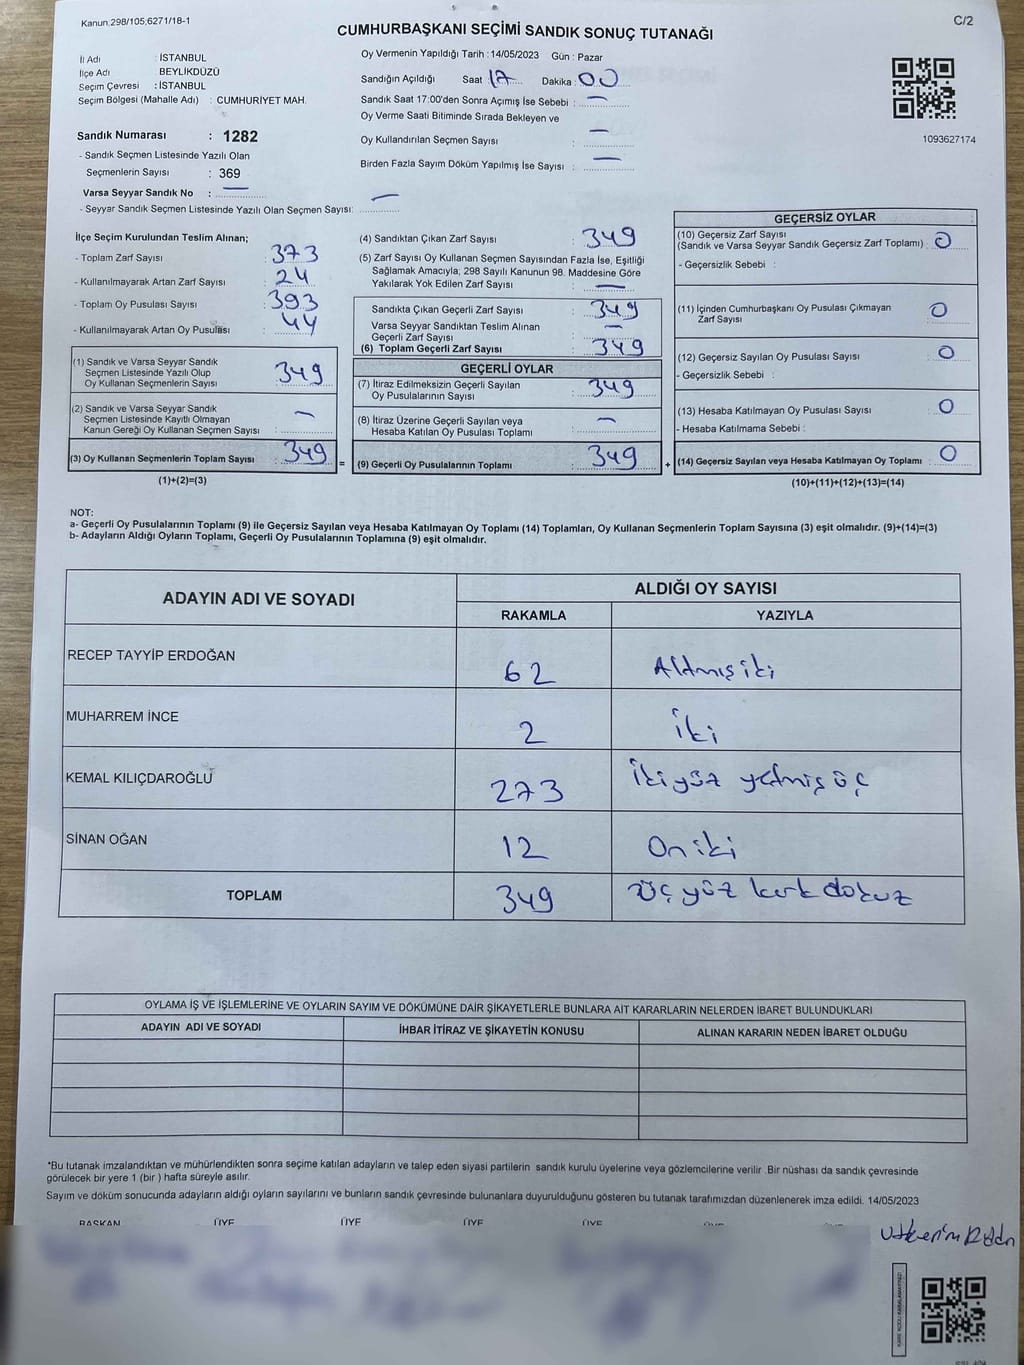 Kanun.298/105,6271/18-1
C/2
CUMHURBAŞKANI SEÇİMİ SANDIK SONUÇ TUTANAĞI
İl Adı : İSTANBUL
İlçe Adı : BEYLİKDÜZÜ
Seçim Çevresi : İSTANBUL
Seçim Bölgesi (Mahalle Adı) : CUMHURİYET MAH.
Sandık Numarası : 1282
- Sandık Seçmen Listesinde Yazılı Olan
Seçmenlerin Sayısı : 369
Varsa Seyyar Sandık No : —
- Seyyar Sandık Seçmen Listesinde Yazılı Olan Seçmen Sayısı: —
Oy Vermenin Yapıldığı Tarih : 14/05/2023 Gün : Pazar
Sandığın Açıldığı Saat 17 Dakika : 00
Sandık Saat 17:00'den Sonra Açımış İse Sebebi : —
Oy Verme Saati Bitiminde Sırada Bekleyen ve
Oy Kullandırılan Seçmen Sayısı : —
Birden Fazla Sayım Döküm Yapılmış İse Sayısı : —
1093627174
İlçe Seçim Kurulundan Teslim Alınan;
- Toplam Zarf Sayısı : 373
- Kullanılmayarak Artan Zarf Sayısı : 24
- Toplam Oy Pusulası Sayısı : 393
- Kullanılmayarak Artan Oy Pusulası : 44
(1) Sandık ve Varsa Seyyar Sandık
Seçmen Listesinde Yazılı Olup
Oy Kullanan Seçmenlerin Sayısı : 349
(2) Sandık ve Varsa Seyyar Sandık
Seçmen Listesinde Kayıtlı Olmayan
Kanun Gereği Oy Kullanan Seçmen Sayısı : —
(3) Oy Kullanan Seçmenlerin Toplam Sayısı : 349
(1)+(2)=(3)
(4) Sandıktan Çıkan Zarf Sayısı : 349
(5) Zarf Sayısı Oy Kullanan Seçmen Sayısından Fazla İse, Eşitliği
Sağlamak Amacıyla; 298 Sayılı Kanunun 98. Maddesine Göre
Yakılarak Yok Edilen Zarf Sayısı : —
Sandıkta Çıkan Geçerli Zarf Sayısı : 349
Varsa Seyyar Sandıktan Teslim Alınan
Geçerli Zarf Sayısı : —
(6) Toplam Geçerli Zarf Sayısı : 349
GEÇERLİ OYLAR
(7) İtiraz Edilmeksizin Geçerli Sayılan
Oy Pusulalarının Sayısı : 349
(8) İtiraz Üzerine Geçerli Sayılan veya
Hesaba Katılan Oy Pusulası Toplamı : —
= (9) Geçerli Oy Pusulalarının Toplamı : 349 +
GEÇERSİZ OYLAR
(10) Geçersiz Zarf Sayısı
(Sandık ve Varsa Seyyar Sandık Geçersiz Zarf Toplamı) : 0
- Geçersizlik Sebebi :
(11) İçinden Cumhurbaşkanı Oy Pusulası Çıkmayan
Zarf Sayısı : 0
(12) Geçersiz Sayılan Oy Pusulası Sayısı : 0
- Geçersizlik Sebebi :
(13) Hesaba Katılmayan Oy Pusulası Sayısı : 0
- Hesaba Katılmama Sebebi :
(14) Geçersiz Sayılan veya Hesaba Katılmayan Oy Toplamı : 0
(10)+(11)+(12)+(13)=(14)
NOT:
a- Geçerli Oy Pusulalarının Toplamı (9) ile Geçersiz Sayılan veya Hesaba Katılmayan Oy Toplamı (14) Toplamları, Oy Kullanan Seçmenlerin Toplam Sayısına (3) eşit olmalıdır. (9)+(14)=(3)
b- Adayların Aldığı Oyların Toplamı, Geçerli Oy Pusulalarının Toplamına (9) eşit olmalıdır.
ADAYIN ADI VE SOYADI ALDIĞI OY SAYISI
RAKAMLA YAZIYLA
RECEP TAYYİP ERDOĞAN 62 Altmış iki
MUHARREM İNCE 2 iki
KEMAL KILIÇDAROĞLU 273 İkiyüz yetmiş üç
SİNAN OĞAN 12 On iki
TOPLAM 349 üç yüz kırk dokuz
OYLAMA İŞ VE İŞLEMLERİNE VE OYLARIN SAYIM VE DÖKÜMÜNE DAİR ŞİKAYETLERLE BUNLARA AİT KARARLARIN NELERDEN İBARET BULUNDUKLARI
ADAYIN ADI VE SOYADI İHBAR İTİRAZ VE ŞİKAYETİN KONUSU ALINAN KARARIN NEDEN İBARET OLDUĞU
*Bu tutanak imzalandıktan ve mühürlendikten sonra seçime katılan adayların ve talep eden siyasi partilerin sandık kurulu üyelerine veya gözlemcilerine verilir .Bir nüshası da sandık çevresinde
görülecek bir yere 1 (bir ) hafta süreyle asılır.
Sayım ve döküm sonucunda adayların aldığı oyların sayılarını ve bunların sandık çevresinde bulunanlara duyurulduğunu gösteren bu tutanak tarafımızdan düzenlenerek imza edildi. 14/05/2023
BAŞKAN ÜYE ÜYE ÜYE ÜYE ÜYE ÜYE